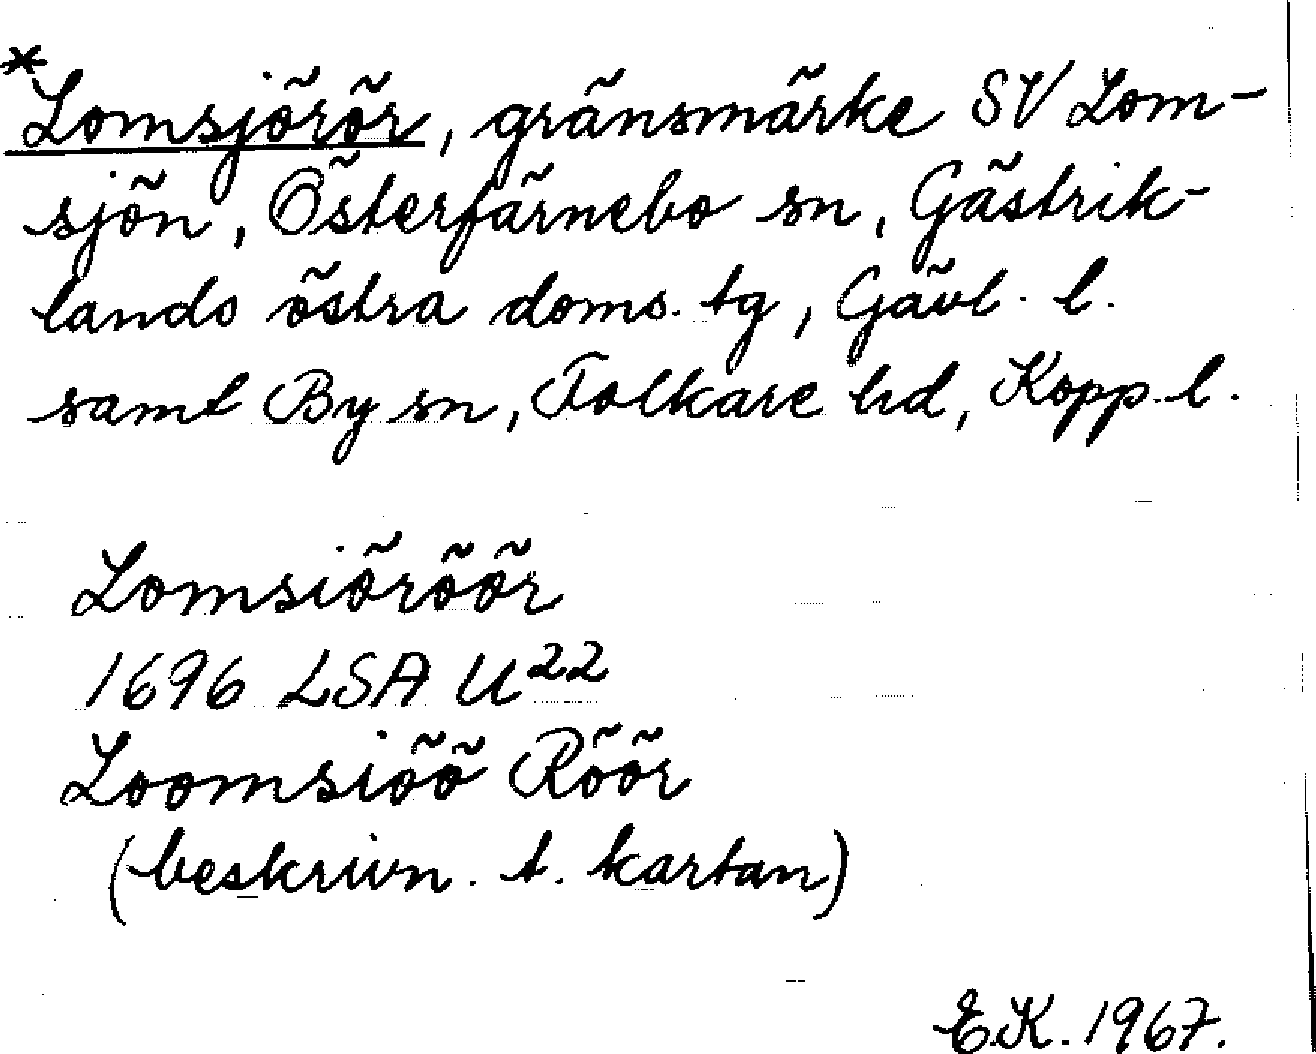 *Lomsjörör, gränsmärke SV Lom-
sjön, Österfärnebo sn, Gästrik-
lands östra doms. tg, Gävl. l.
samt By sn, Folkare hd, Kopp. l.
Lomsiöröör
1696 LSA U²²
Loomsiöö Röör
(beskrivn. t. kartan)
E.K. 1967.